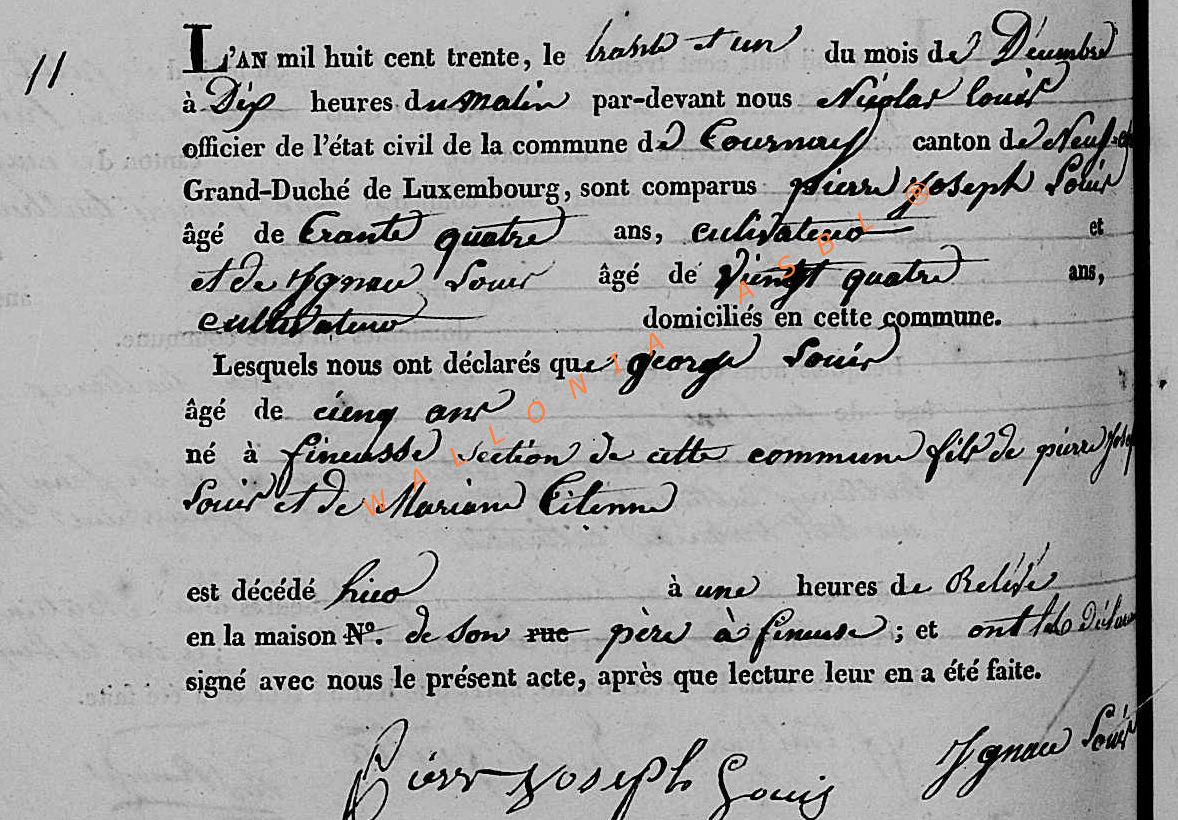 11
L'AN mil huit cent trente, le trante et un du mois de Décembre
à Dix heures du matin par-devant nous Nicolas Louis
officier de l'état civil de la commune de Tournay canton de Neuf-ch
Grand-Duché de Luxembourg, sont comparus pierre joseph Louis
âgé de trante quatre ans, cultivateur et
et de Ignace Louis âgé de Viengt quatre ans,
cultivateur domiciliés en cette commune.
Lesquels nous ont déclarés que george Louis
âgé de cienq ans
né à fineusse section de cette commune fils de pierre josep
Louis et de Mariane Etienne
est décédé hier à une heures de Relevé
en la maison N°. de son rue père à fineuse ; et ont les
signé avec nous le présent acte, après que lecture leur en a été faite.
Pierr Joseph Louis Ignace Louis
WALLONIA ASBL ®